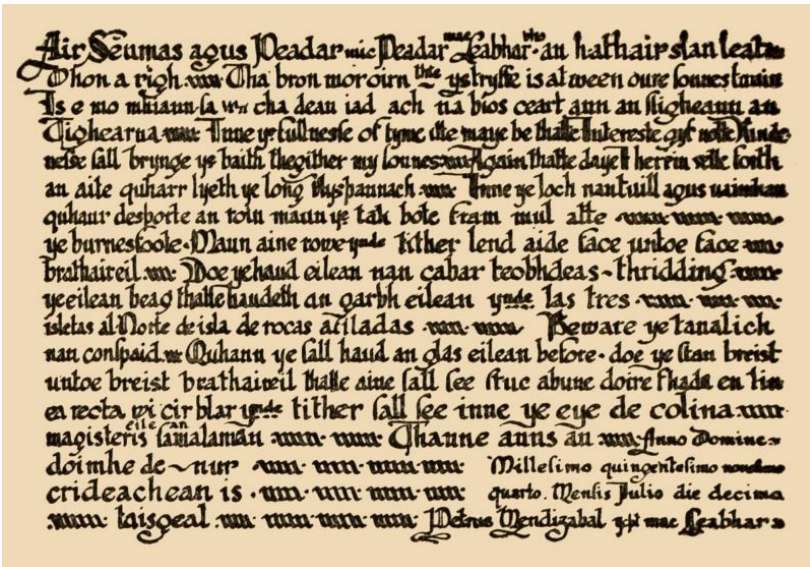 Air Seumas agus Peadar mic Peadar mac Leabhar. an hathair slan leat
Dhon a righ. Tha bron mor oirn thte ys tryffe is atween oure sonnes tuain
Is e mo mhiann sa cha dean iad ach na bios ceart ann an sligheann an
Tighearna Inne ye fullnesse of tyme itte maye be thatte Intereste gyf notte Kinde
nesse sall brynge ys baith thegither my sonnes Again thatte daye I herrin sette forth
an aite quharr lyeth ye long Hyspannach Inne ye loch nantuill agus uaimhan
quhaur desporte an roin maun ye tak bote fram mul atte
ye burnesfoote. Maun aine rowe ynde tither lend aide face untoe face
brathaireil. Doe ye haud eilean nan cabar teobhdeas - thridding
ye eilean beag thatte haudeth an garbh eilean ynde las tres
isletas al Norte de isla de rocas afiladas Beware ye tanalich
nan conspaid. Quhann ye sall haud an glas eilean before. doe ye stan breist
untoe breist brathaireil thatte aine sall see stuc abune doire fhada en lin
ea recta vi cir blar ynde tither sall see inne ye eye de colina
magisteris eile an samalaman Thanne anns an Anno Domine
doimhe de nur Millesimo quingentesimo nono
crideachean is quarto. Mensis Julio die decima
taisgeal Petrus Mendizabal mac Leabhar